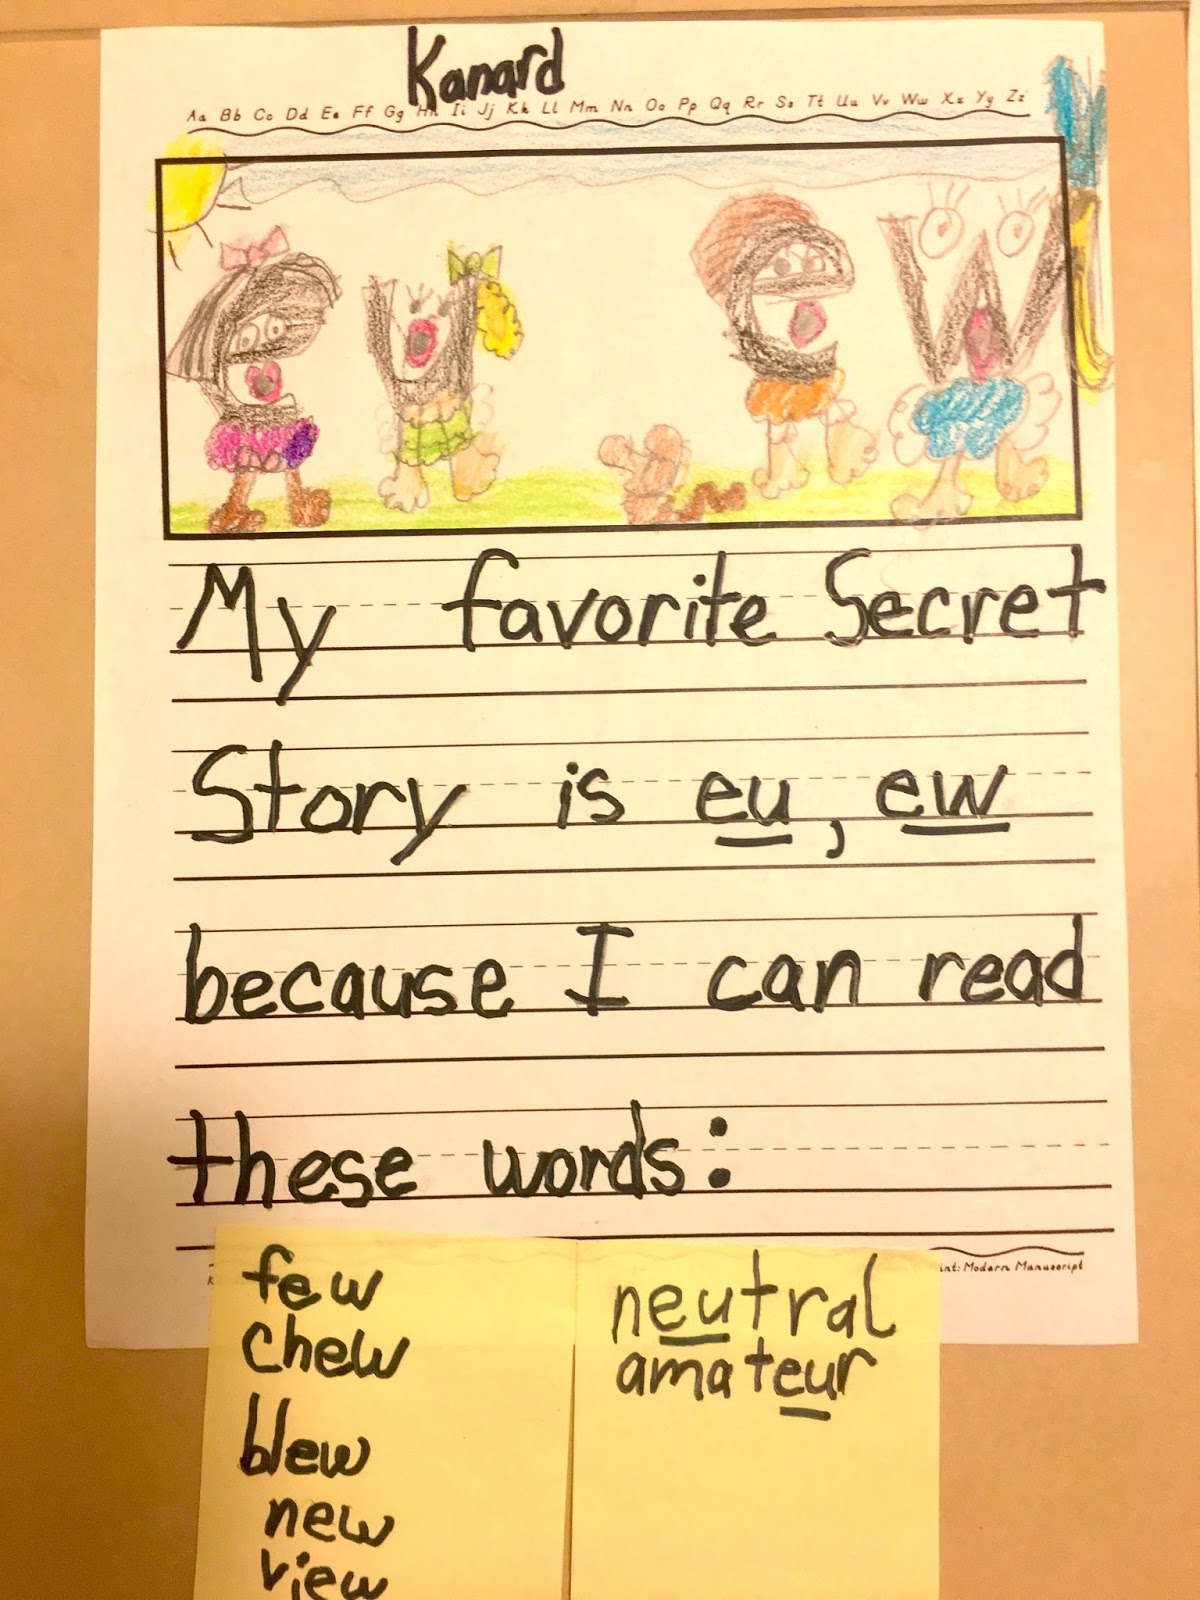 Kanard
Aa Bb Cc Dd Ee Ff Gg Hh Ii Jj Kk Ll Mm Nn Oo Pp Qq Rr Ss Tt Uu Vv Ww Xx Yy Zz
My favorite Secret
Story is eu, ew
because I can read
these words:
Modern Manuscript
few
chew
blew
new
view
neutral
amateur